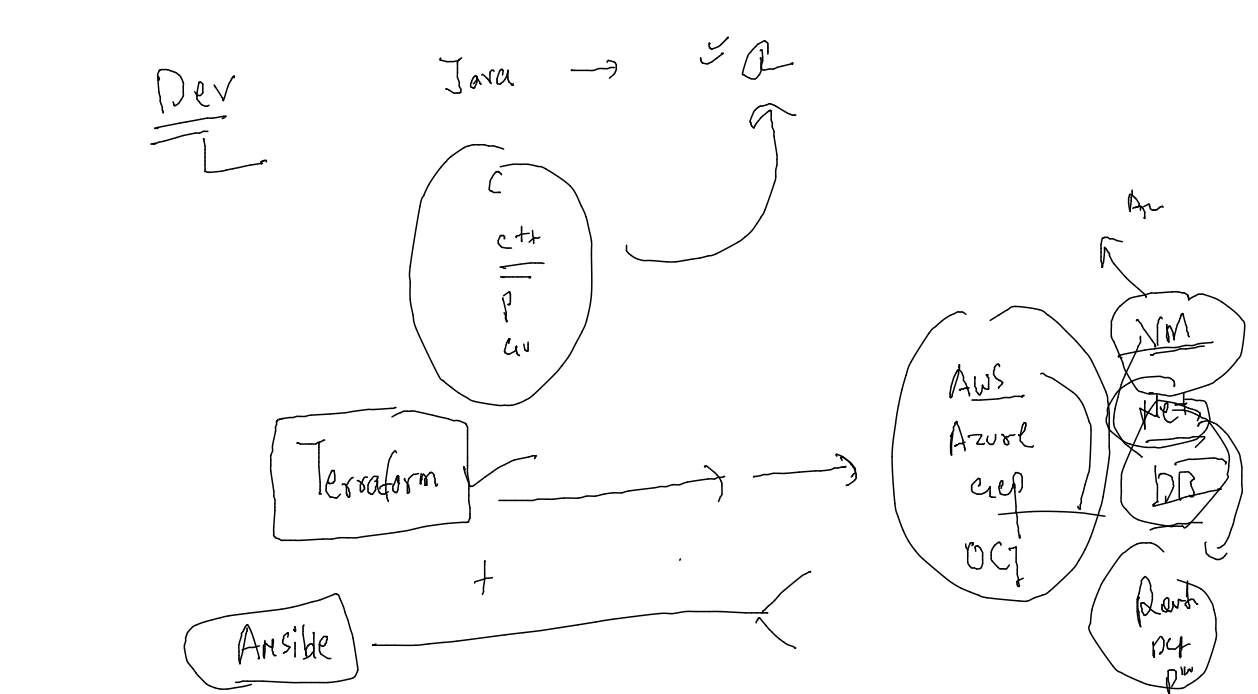 Dev
Java →
C
C++
P
Terraform
+
Ansible
AWS
Azure
GCP
OCI
VM
Net
DB